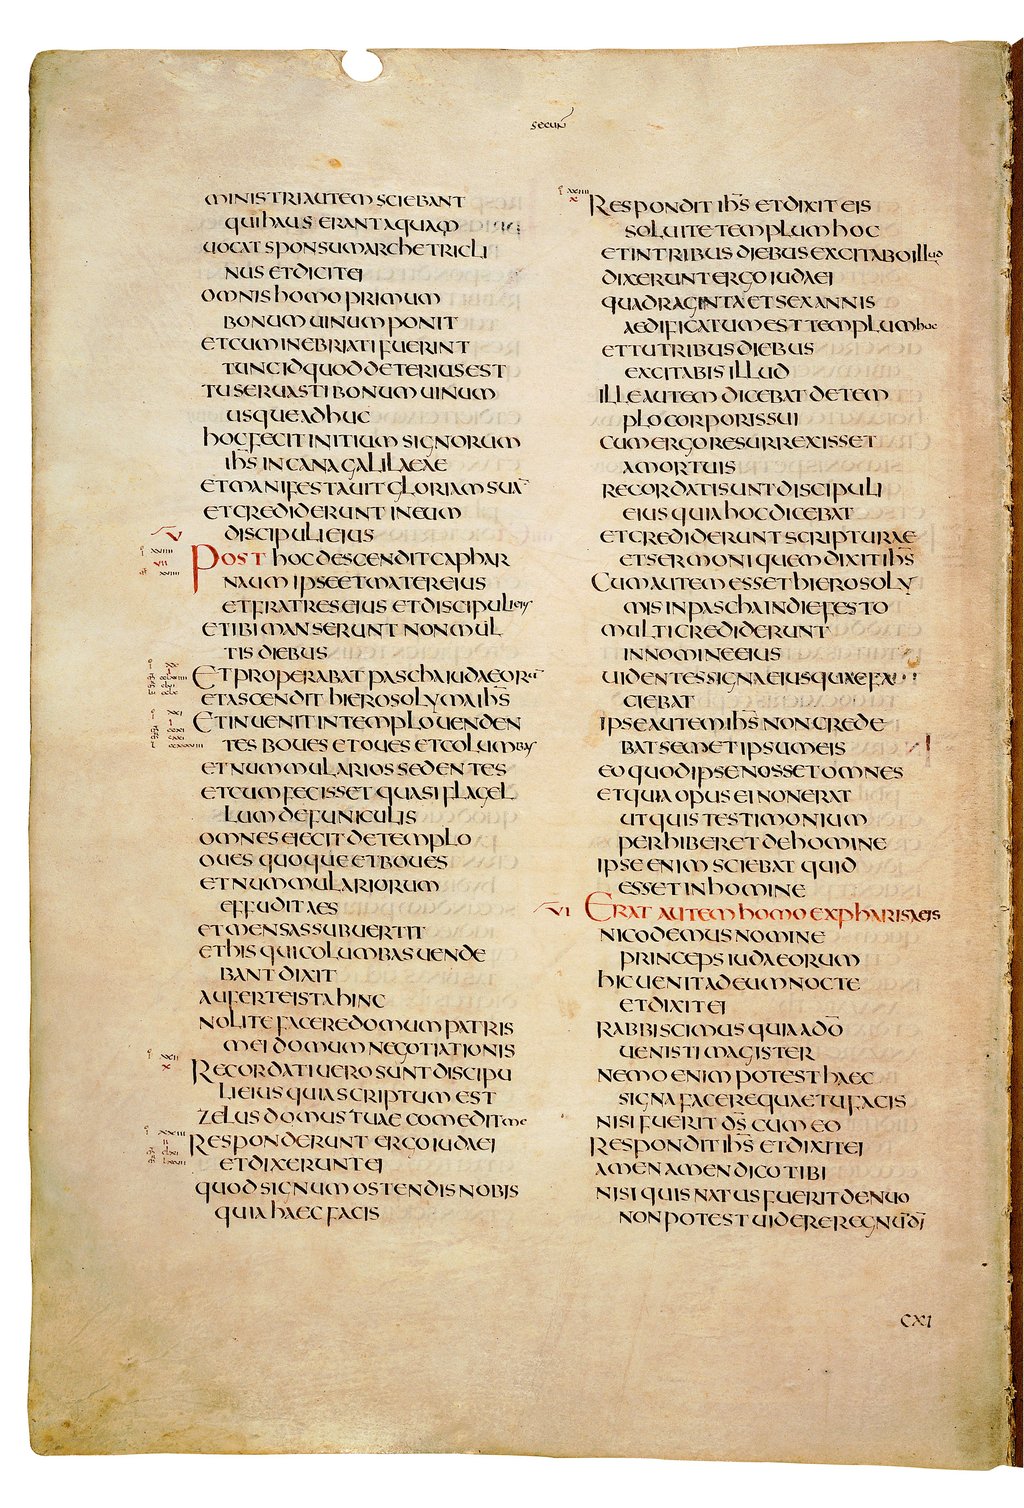 secun
MINISTRI AUTEM SCIEBANT
QUI HAUSERANT AQUAM
UOCAT SPONSUM ARCHETRICLI
NUS ET DICIT EI
OMNIS HOMO PRIMUM
BONUM UINUM PONIT
ET CUM INEBRIATI FUERINT
TUNC ID QUOD DETERIUS EST
TU SERUASTI BONUM UINUM
USQUE ADHUC
HOC FECIT INITIUM SIGNORUM
IHS IN CANA GALILAEAE
ET MANIFESTAUIT GLORIAM SUA
ET CREDIDERUNT IN EUM
DISCIPULI EIUS
V
POST HOC DESCENDIT CAPHAR
NAUM IPSE ET MATER EIUS
ET FRATRES EIUS ET DISCIPULI EIUS
ET IBI MANSERUNT NON MUL
TIS DIEBUS
ET PROPERABAT PASCHA IUDAEORU
ET ASCENDIT HIEROSOLYMA IHS
ET INUENIT IN TEMPLO UENDEN
TES BOUES ET OUES ET COLUMBAS
ET NUMMULARIOS SEDENTES
ET CUM FECISSET QUASI FLAGEL
LUM DE FUNICULIS
OMNES EIECIT DE TEMPLO
OUES QUOQUE ET BOUES
ET NUMMULARIORUM
EFFUDIT AES
ET MENSAS SUBUERTIT
ET HIS QUI COLUMBAS UENDE
BANT DIXIT
AUFERTE ISTA HINC
NOLITE FACERE DOMUM PATRIS
MEI DOMUM NEGOTIATIONIS
RECORDATI UERO SUNT DISCIPU
LI EIUS QUIA SCRIPTUM EST
ZELUS DOMUS TUAE COMEDIT ME
RESPONDERUNT ERGO IUDAEI
ET DIXERUNT EI
QUOD SIGNUM OSTENDIS NOBIS
QUIA HAEC FACIS
RESPONDIT IHS ET DIXIT EIS
SOLUITE TEMPLUM HOC
ET IN TRIBUS DIEBUS EXCITABO ILLUD
DIXERUNT ERGO IUDAEI
QUADRAGINTA ET SEX ANNIS
AEDIFICATUM EST TEMPLUM HOC
ET TU TRIBUS DIEBUS
EXCITABIS ILLUD
ILLE AUTEM DICEBAT DE TEM
PLO CORPORIS SUI
CUM ERGO RESURREXISSET
A MORTUIS
RECORDATI SUNT DISCIPULI
EIUS QUIA HOC DICEBAT
ET CREDIDERUNT SCRIPTURAE
ET SERMONI QUEM DIXIT IHS
CUM AUTEM ESSET HIEROSOLY
MIS IN PASCHA IN DIE FESTO
MULTI CREDIDERUNT
IN NOMINE EIUS
UIDENTES SIGNA EIUS QUAE FA
CIEBAT
IPSE AUTEM IHS NON CREDE
BAT SEMET IPSUM EIS
EO QUOD IPSE NOSSET OMNES
ET QUIA OPUS EI NON ERAT
UT QUIS TESTIMONIUM
PERHIBERET DE HOMINE
IPSE ENIM SCIEBAT QUID
ESSET IN HOMINE
VI ERAT AUTEM HOMO EX PHARISAEIS
NICODEMUS NOMINE
PRINCEPS IUDAEORUM
HIC UENIT AD EUM NOCTE
ET DIXIT EI
RABBI SCIMUS QUIA A DO
UENISTI MAGISTER
NEMO ENIM POTEST HAEC
SIGNA FACERE QUAE TU FACIS
NISI FUERIT DS CUM EO
RESPONDIT IHS ET DIXIT EI
AMEN AMEN DICO TIBI
NISI QUIS NATUS FUERIT DENUO
NON POTEST UIDERE REGNU DI
CXI